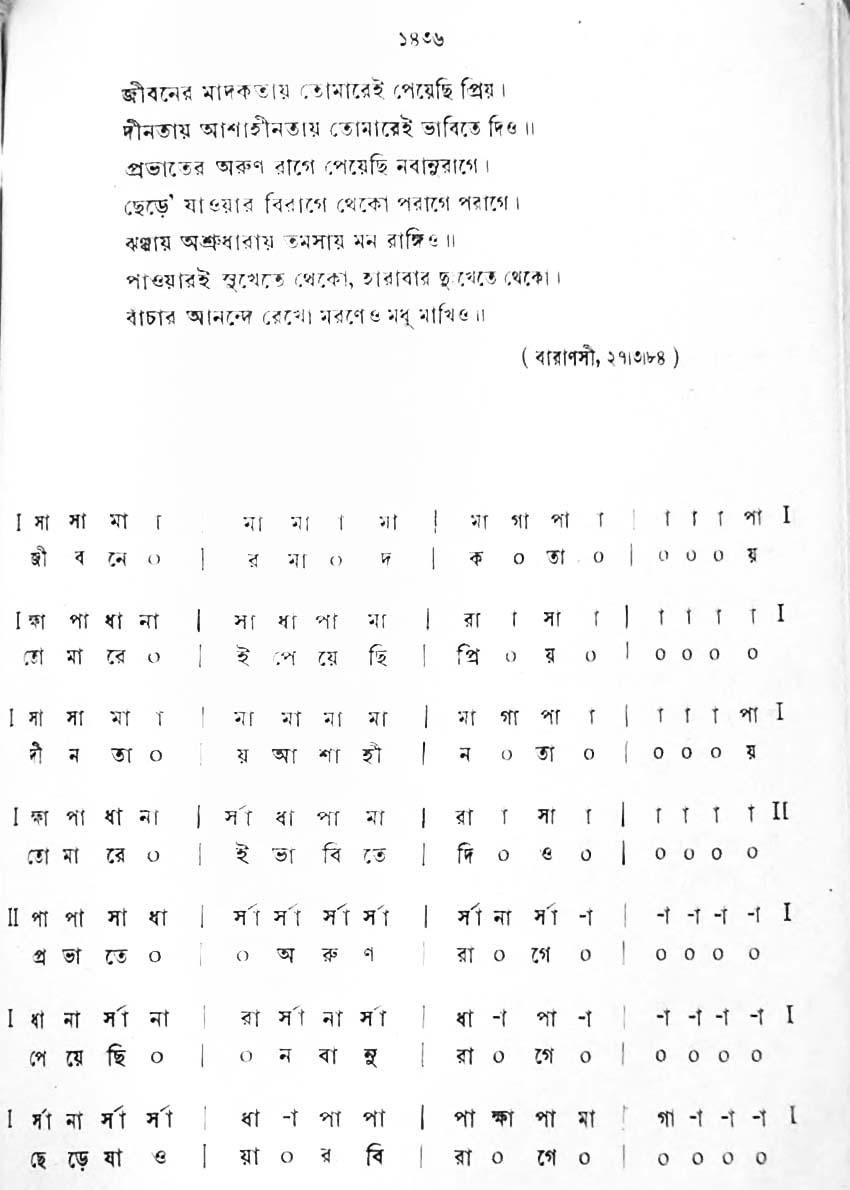 ১৪৩৬
জীবনের মাদকতায় তোমারেই পেয়েছি প্রিয়।
দীনতায় আশাহীনতায় তোমারেই ভাবিতে দিও॥
প্রভাতের অরুণ রাগে পেয়েছি নবানুরাগে।
ছেড়ে' যাওয়ার বিরাগে থেকো পরাগে পরাগে।
ঝঞ্ঝায় অশ্রুধারায় তমসায় মন রাঙ্গিও॥
পাওয়ারই সুখেতে থেকো, হারাবার দুঃখেতে থেকো।
বাঁচার আনন্দে রেখো মরণেও মধু মাখিও॥
( বারাণসী, ২৭।৩।৮৪ )
I সা সা মা া | মা মা া মা | মা গা পা া | া া া পা I
জী ব নে ০ | র মা ০ দ | ক ০ তা ০ | ০ ০ ০ য়
I হ্মা পা ধা না | সা ধা পা মা | রা া সা া | া া া া I
তো মা রে ০ | ই পে য়ে ছি | প্রি ০ য় ০ | ০ ০ ০ ০
I সা সা মা া | মা মা মা মা | মা গা পা া | া া া পা I
দী ন তা ০ | য় আ শা হী | ন ০ তা ০ | ০ ০ ০ য়
I হ্মা পা ধা না | র্সা ধা পা মা | রা া সা া | া া া া II
তো মা রে ০ | ই ভা বি তে | দি ০ ও ০ | ০ ০ ০ ০
II পা পা সা ধা | র্সা র্সা র্সা র্সা | র্সা না র্সা -া | -া -া -া -া I
প্র ভা তে ০ | ০ অ রু ণ | রা ০ গে ০ | ০ ০ ০ ০
I ধা না র্সা না | রা র্সা না র্সা | ধা -া পা -া | -া -া -া -া I
পে য়ে ছি ০ | ০ ন বা নু | রা ০ গে ০ | ০ ০ ০ ০
I র্সা না র্সা র্সা | ধা -া পা পা | পা হ্মা পা মা | গা -া -া -া I
ছে ড়ে যা ও | য়া ০ র বি | রা ০ গে ০ | ০ ০ ০ ০